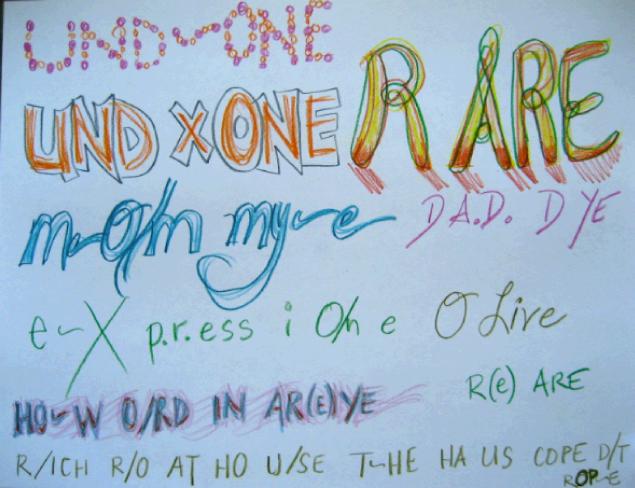 UND~ONE
UND x ONE R ARE
m~O/m my~e D A.D. D YE
e~X p.r.ess i O/n e O Live
R(e) ARE
HO~W O/RD IN AR(E)YE
R/ICH R/O AT HO U/SE T~HE HA US COPE D/T
ROP~E